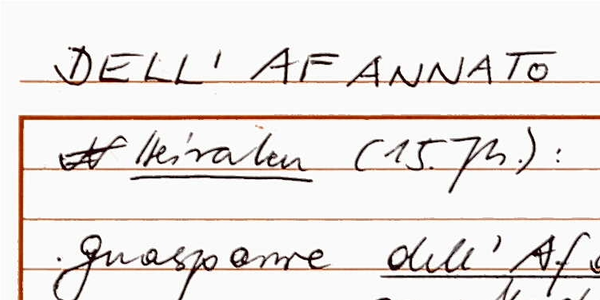 DELL' AFANNATO
Heiraten (15. Jh.):
Guasparre dell' Af